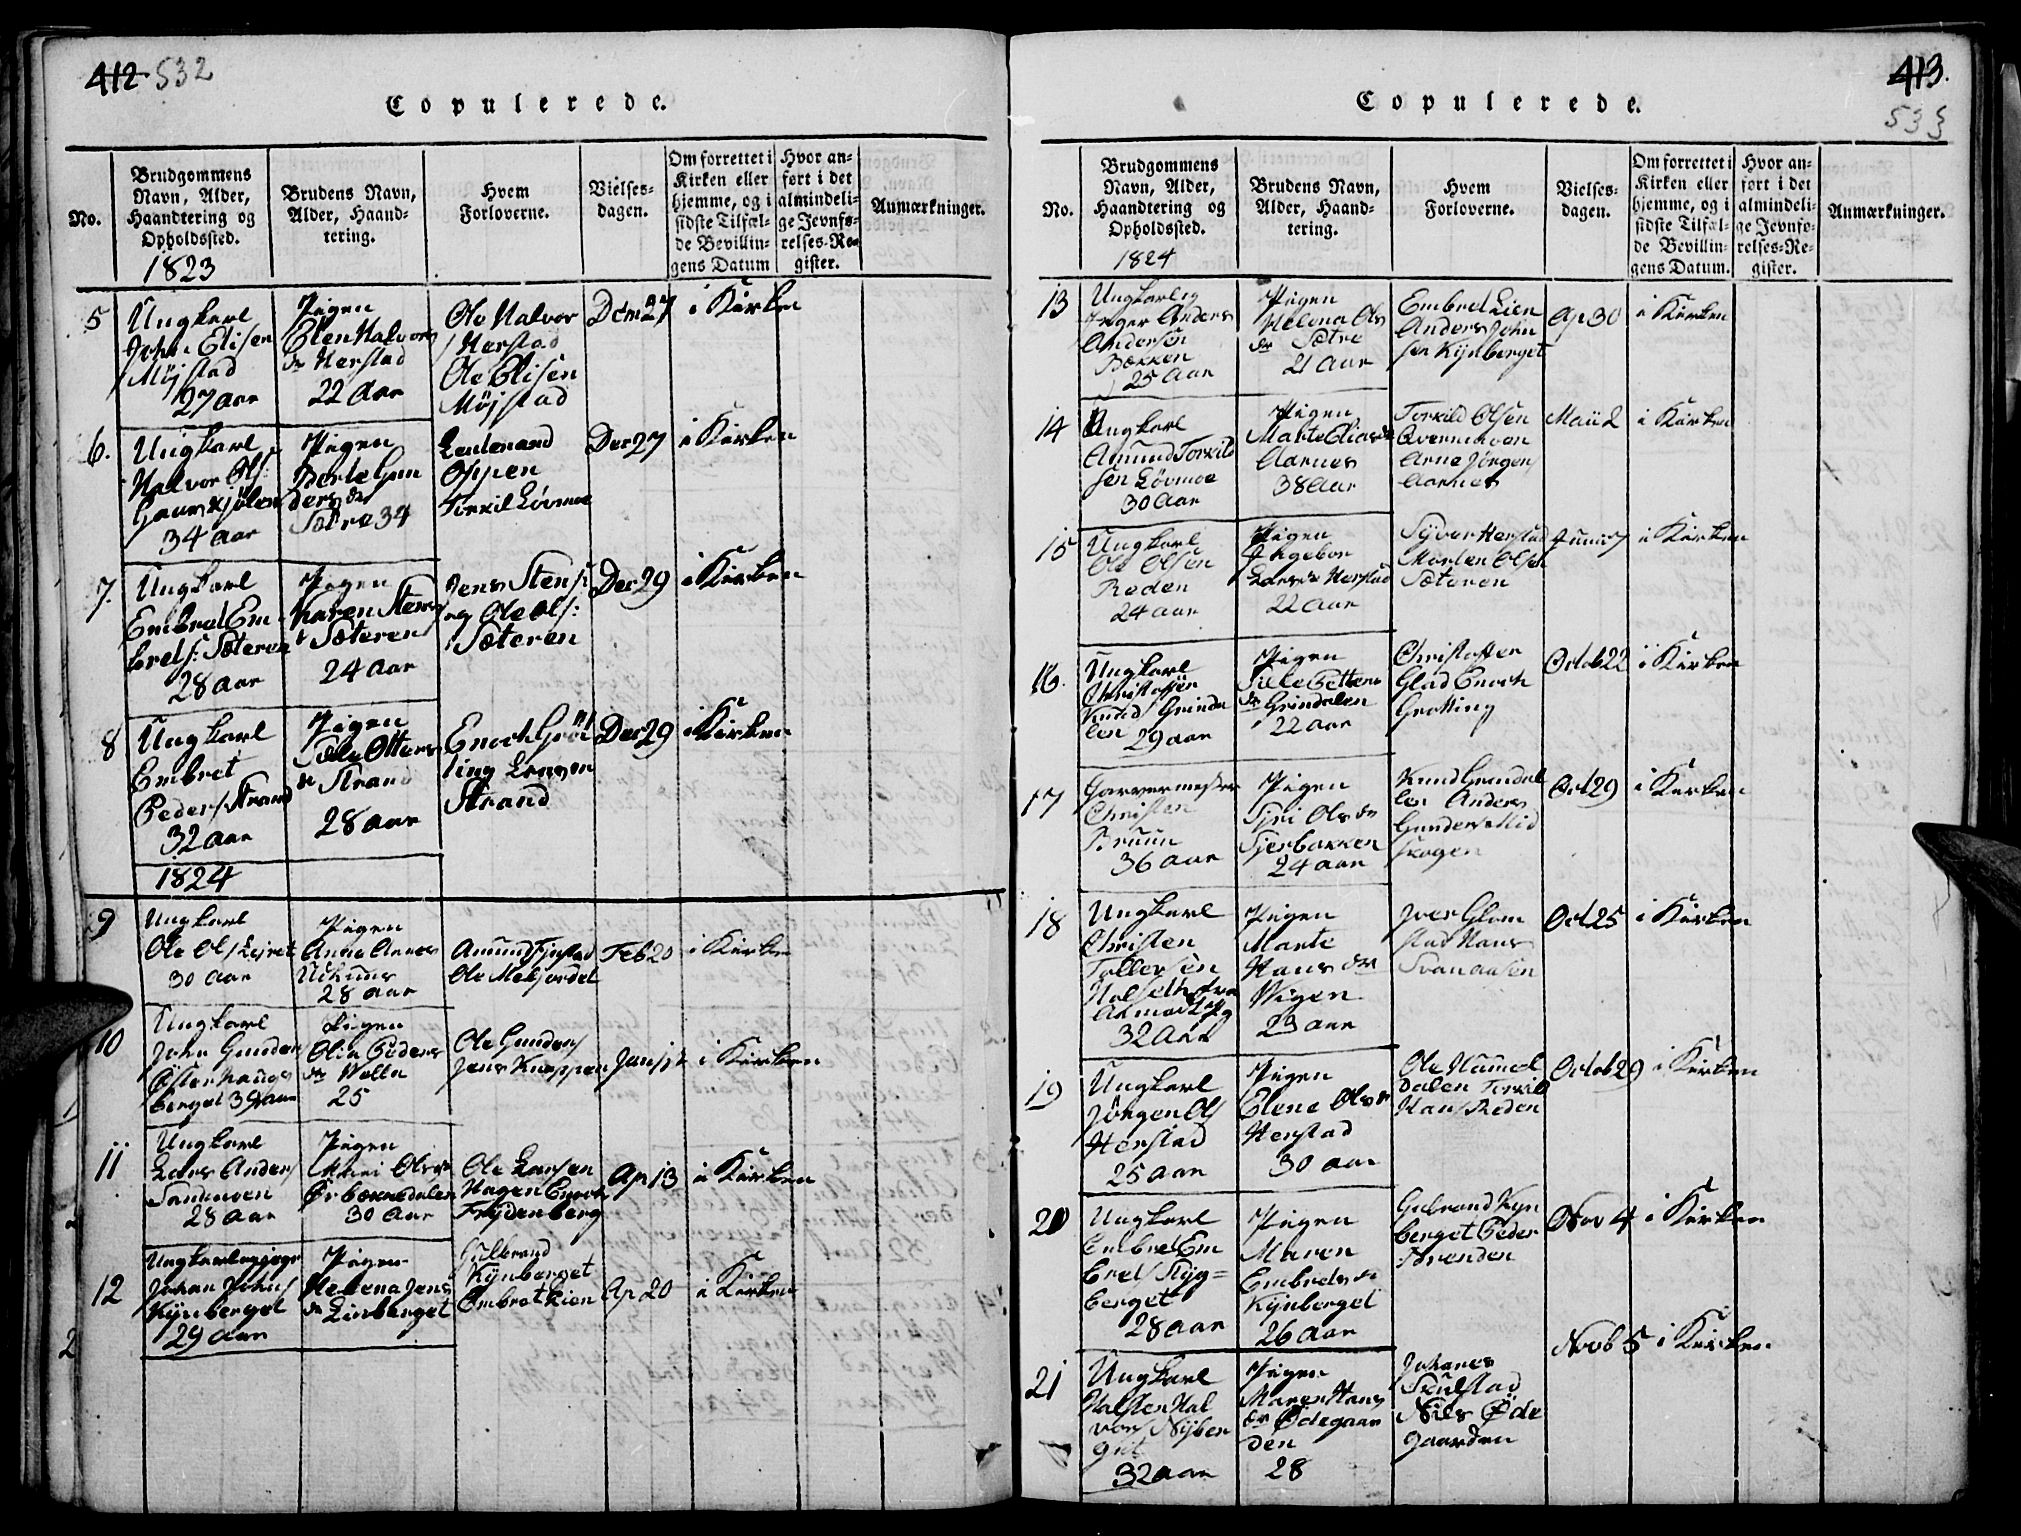 412 532
Copulerede.
No.
Brudgommens
Navn, Alder,
Haandtering og
Opholdssted.
1823
Brudens Navn,
Alder, Haand-
tering.
Hvem
Forloverne.
Vielses-
dagen.
Om forrettet i
Kirken eller
hjemme, og i
sidste Tilfæl-
de Bevillin-
gens Datum
Hvor an-
ført i det
almindeli-
ge Jevnfø-
relses-Re-
gister.
Anmærkninger.
5
Ungkarl
John Elisen
Møjstad
27 Aar
Pigen
Elen Halvors
dr Herstad
22 Aar
Ole Halvor
Herstad
Ole Elisen
Møjstad
27
i Kirken
6.
Ungkarl
Halvor Ols:
34 Aar
Pigen
Berte Gun
ders dr
Sætre 34
Oppen
Torkil Lövmoe
Dec 27
i Kirken
7.
Ungkarl
Embret Em-
brets: Sæteren
28 Aar
Pigen
Karen Stens
Sæteren
24 Aar
Jens Stens:
og Ole Ols:
Sæteren
Dec 29
i Kirken
8
Ungkarl
Embret
Peders Strand
32 Aar
Pigen
Otters
dr Strand
28 Aar
Enoch Gröt
ting
Strand
Dec 29
i Kirken
1824
9
Ungkarl
Ole Ols
30 Aar
Pigen
Anne
28 Aar
Amund
Ole
Feb 20
i Kirken
10
Ungkarl
John Gunders
Österhaugs
berget 39 Aar
Pigen
Olia Peders
dr Wolla
25
Ole Gunders
Jens Knappen
i Kirken
11
Ungkarl
Lars Anders
28 Aar
Pigen
Mari Olsdr
Örbækkedalen
30 Aar
Ole Larsen
Hagen Enoch
Frydenberg
Ap 13
i Kirken
12
Johan Johns
Kynberget
29 Aar
Pigen
Helena Jens
dr Linberget
Gulbrand
Kynberget
Embret Lien
Ap 20
i Kirken
413.
533
Copulerede.
No.
Brudgommens
Navn, Alder,
Haandtering og
Opholdssted.
1824
Brudens Navn,
Alder, Haand-
tering.
Hvem
Forloverne.
Vielses-
dagen.
Om forrettet i
Kirken eller
hjemme, og i
sidste Tilfæl-
de Bevillin-
gens Datum.
Hvor an-
ført i det
almindeli-
ge Jevnfø-
relses-Re-
gister.
Anmærkninger.
13
Anders
Andersen
Bækken
25 Aar
Pigen
Helena Ols
dr Sætre
21 Aar
Embret Lien
Anders John
sen Kynberget
Ap 30
i Kirken
14
Ungkarl
Amund Torkild
sen Lövmoe
30 Aar
Pigen
Marte Eliasdr
Aarnes
38 Aar
Torkild Olsen
Overmoen
Arne Jörgens
Aarnes
Maii 2
i Kirken
15
Ungkarl
Ole Olsen
Røden
24 Aar
Pigen
Ingebor
Larsdr Herstad
22 Aar
Syver Herstad
Morten Olsen
Sæteren
Juni 7
i Kirken
16.
Ungkarl
Christoffer
Knuds Grinda
len 29 Aar
Pigen
Petters
dr Grindalen
22 Aar
Christoffer
Glad Enoch
Grøtting
Octob 22
i Kirken
17
Garvermester
Christen
Bruun
36 Aar
Pigen
Olsdr
24 Aar
Knud Grindal
len Anders
Gunders Mid
skogen
Oct 29
i Kirken
18
Ungkarl
Christen
Tollefsen
Halseth fra
32 Aar
Pigen
Marte
Hansdr
Wigen
23 Aar
Iver Glom
stad Hans
Svanaasen
Oct 25
i Kirken
19
Ungkarl
Jörgen Ols
Herstad
25 Aar
Pigen
Elene Olsdr
Herstad
30 Aar
Ole Hummel
dalen Torkil
Hans Røden
Octob 29
i Kirken
20
Ungkarl
Embret Em
brets Styg-
berget
28 Aar
Pigen
Maren
Embretsdr
Kynberget
26 Aar
Gulbrand Kyn
berget Peder
Nov 4
i Kirken
21
Ungkarl
Halsten Hal
vors Nyber
get
32 Aar
Pigen
Maren Hans
dr Ødegaar
den
28
Johanes
Skulstad
Nils Øde
gaarden
Novb 5
i Kirken